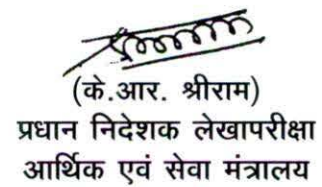 (के.आर. श्रीराम)
प्रधान निदेशक लेखापरीक्षा
आर्थिक एवं सेवा मंत्रालय